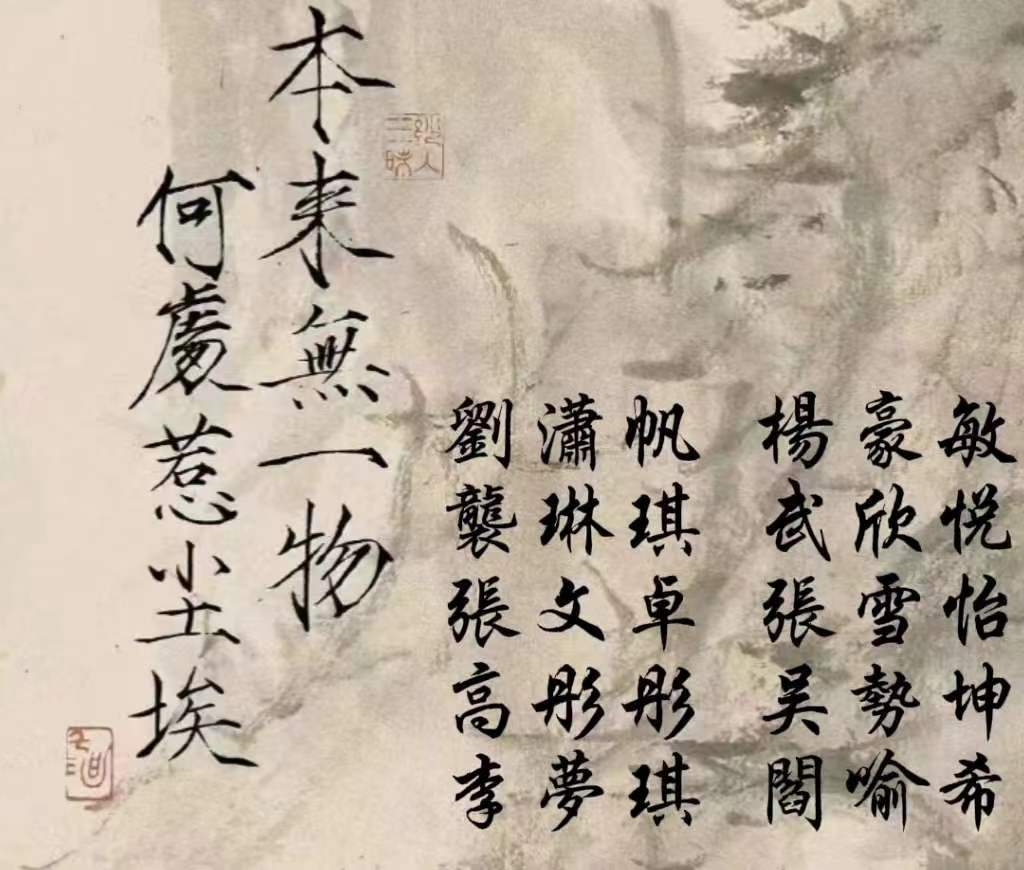 本来無一物
何處惹尘埃
劉瀟帆
襲琳琪
張文卓
高彤彤
李夢琪
楊豪敏
武欣悦
張雪怡
吴勢坤
閻喻希